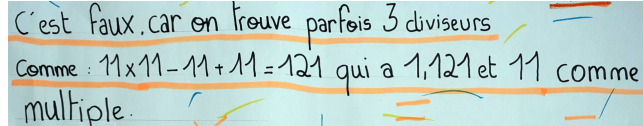 C'est faux, car on trouve parfois 3 diviseurs
Comme : 11x11-11+11=121 qui a 1,121 et 11 comme
multiple.